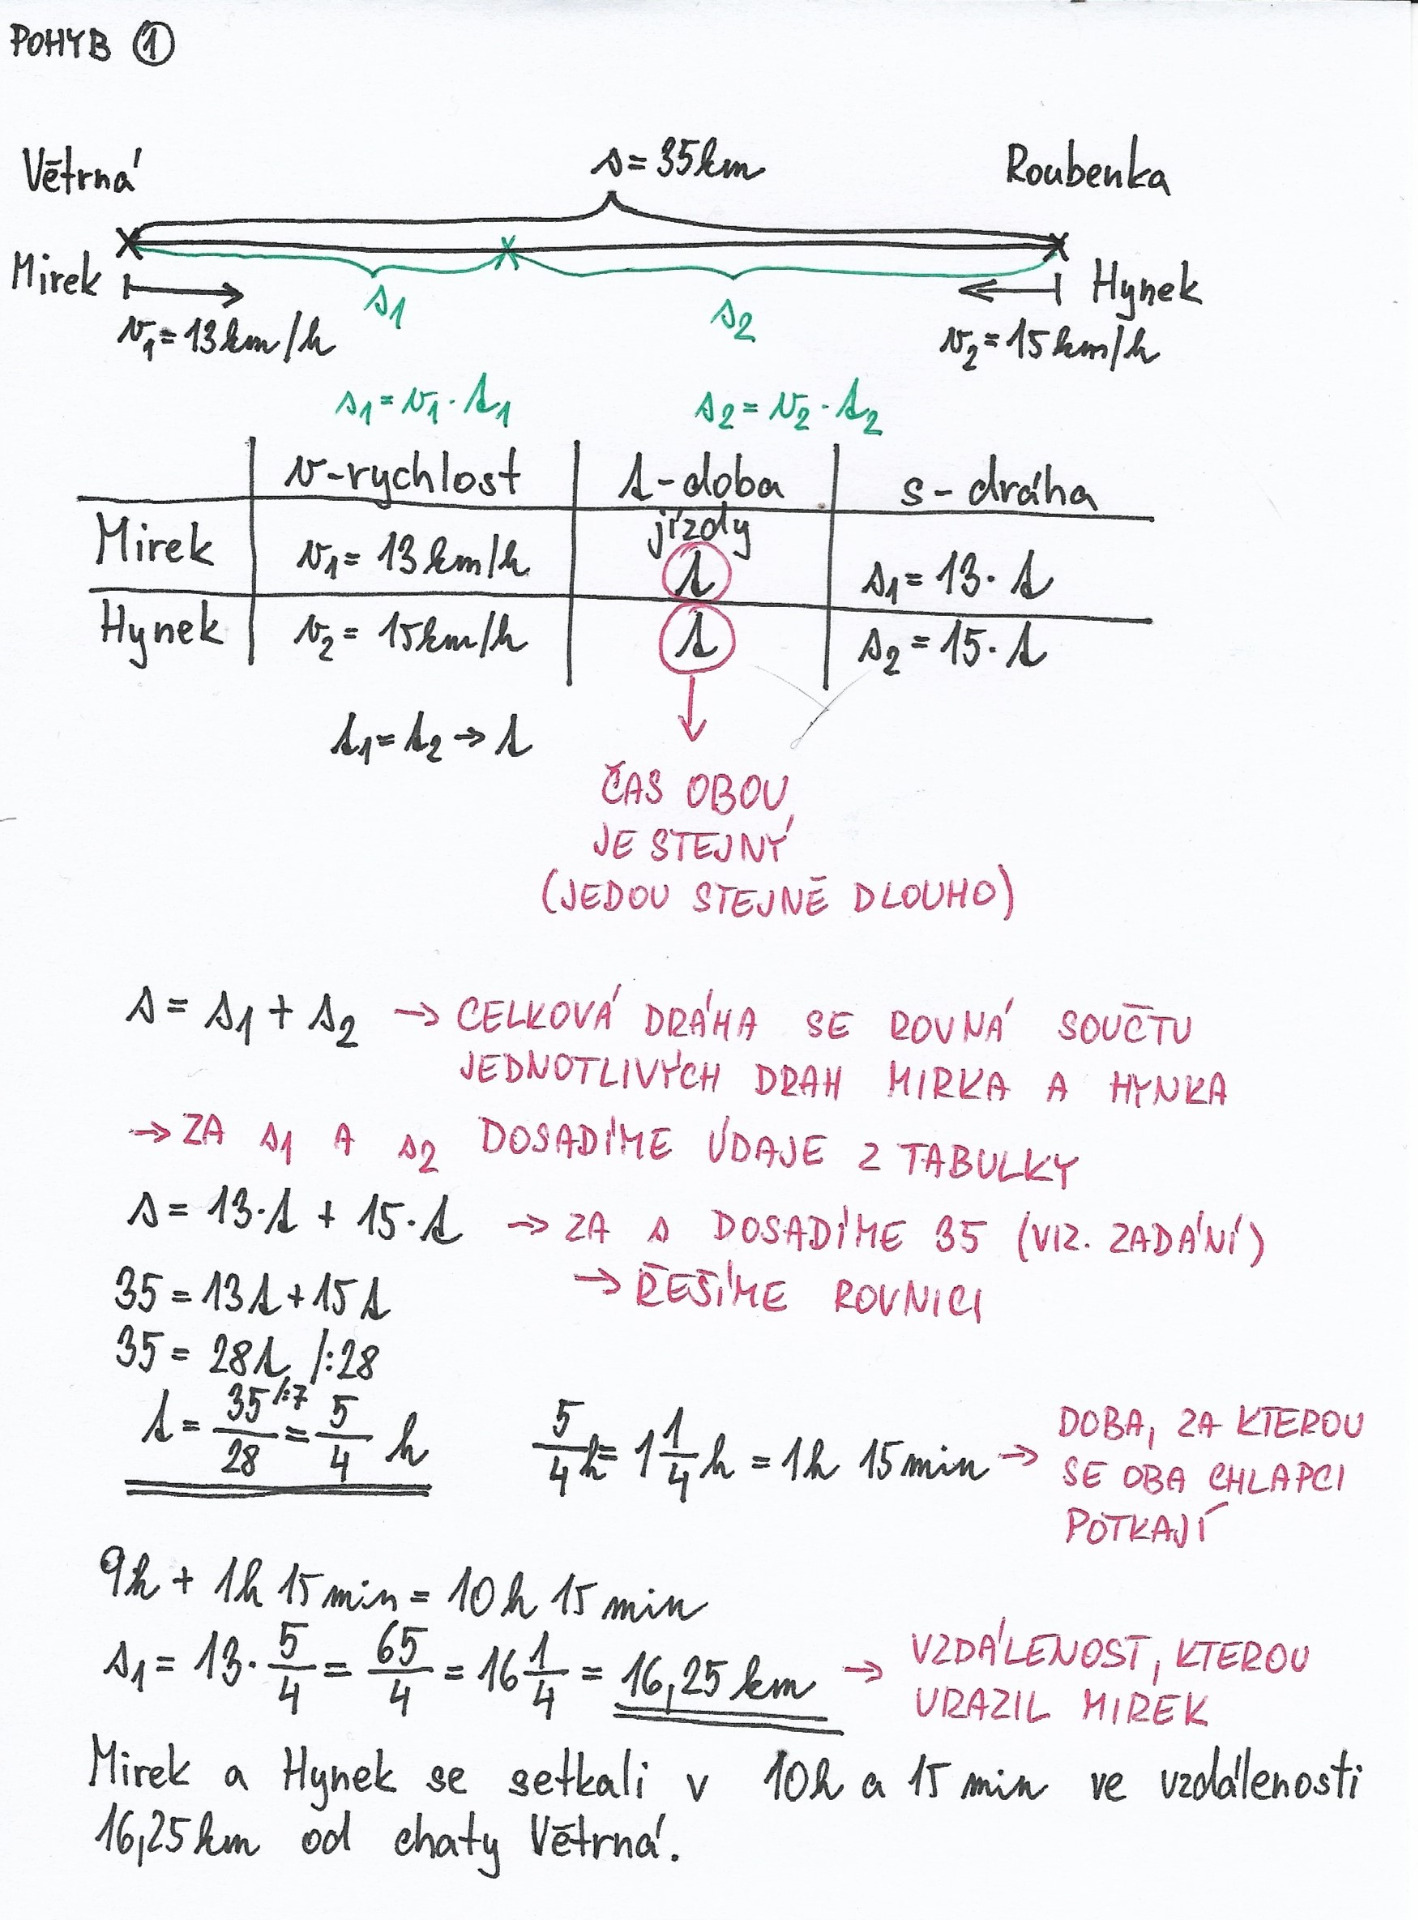 POHYB ①
Větrná
s = 35km
Roubenka
Mirek
Hynek
v₁ = 13km/h
s₁
s₂
v₂ = 15km/h
s₁ = v₁ · t₁
s₂ = v₂ · t₂
v-rychlost
t-doba jízdy
s - dráha
Mirek
v₁ = 13 km/h
t
s₁ = 13 · t
Hynek
v₂ = 15km/h
t
s₂ = 15 · t
t₁ = t₂ → t
ČAS OBOU
JE STEJNÝ
(JEDOU STEJNĚ DLOUHO)
s = s₁ + s₂ → CELKOVÁ DRÁHA SE ROVNÁ SOUČTU
JEDNOTLIVÝCH DRAH MIRKA A HYNKA
→ ZA s₁ A s₂ DOSADÍME ÚDAJE Z TABULKY
s = 13·t + 15·t → ZA s DOSADÍME 35 (VIZ. ZADÁNÍ)
35 = 13t + 15t → ŘEŠÍME ROVNICI
35 = 28t /:28
t = 35/28 /:7 = 5/4 h
5/4 h = 1 1/4 h = 1h 15 min → DOBA, ZA KTEROU
SE OBA CHLAPCI
POTKAJÍ
9h + 1h 15 min = 10h 15 min
s₁ = 13 · 5/4 = 65/4 = 16 1/4 = 16,25 km → VZDÁLENOST, KTEROU
URAZIL MIREK
Mirek a Hynek se setkali v 10h a 15 min ve vzdálenosti
16,25km od chaty Větrná.